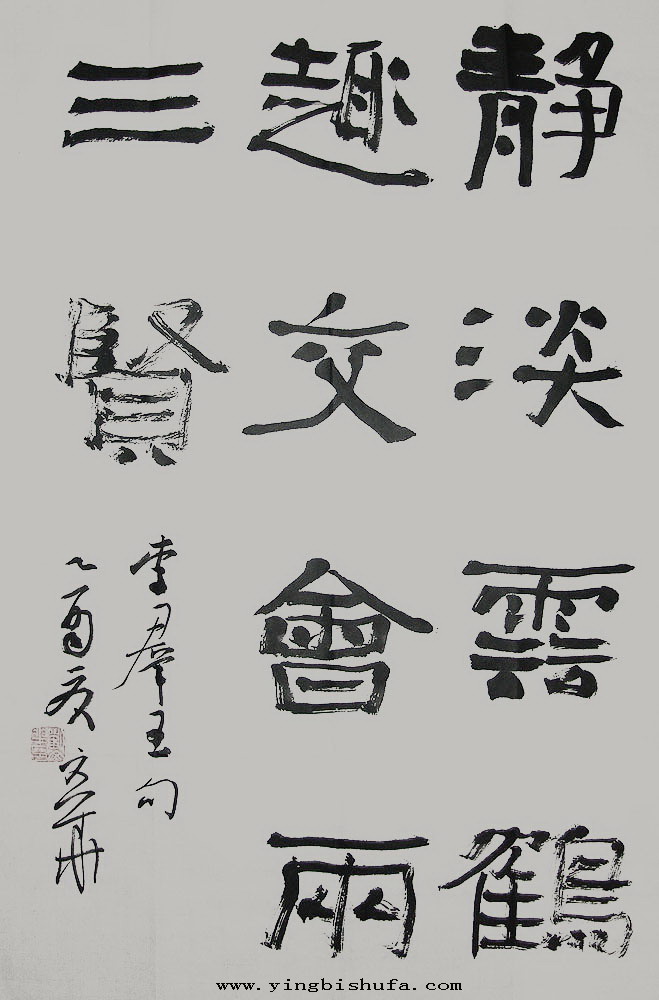 靜淡雲鶴
趣交會兩
三賢
李羣玉句
乙酉
www.yingbishufa.com